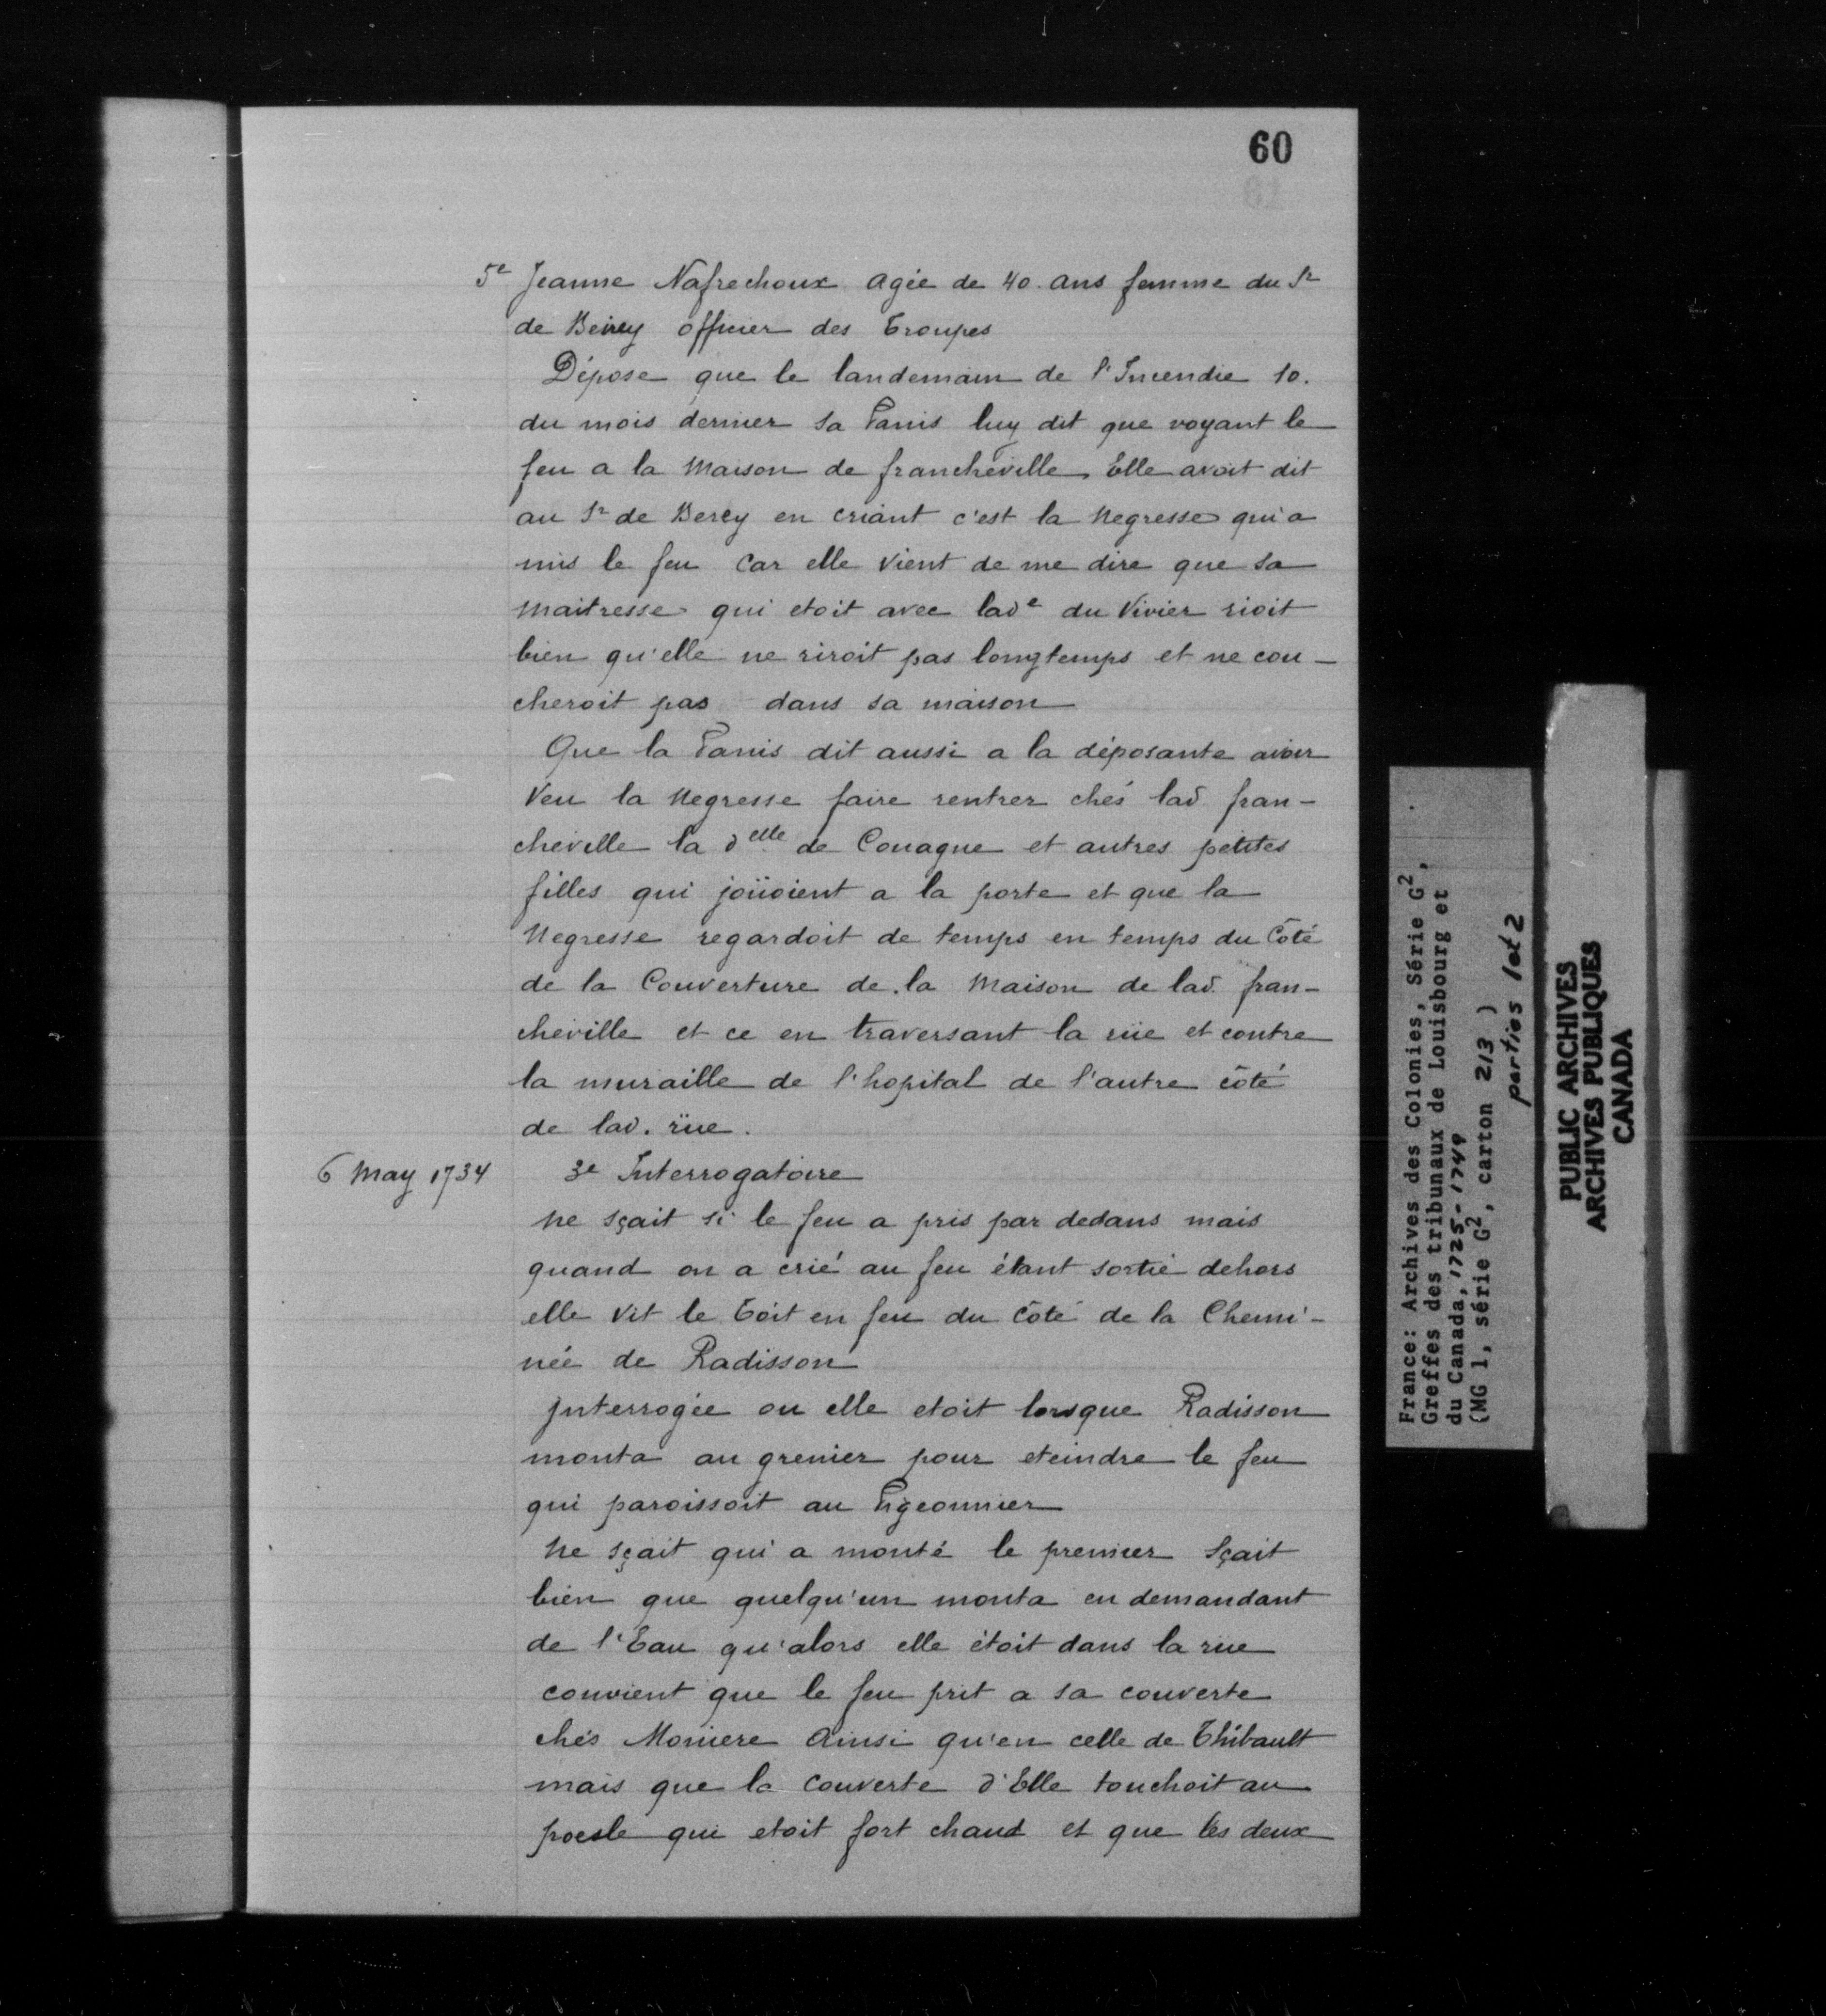 60
5e Jeanne Nafrechoux agée de 40. ans femme du Sr
de Berey officier des Troupes
Dépose que le landemain de l'Incendie 10.
du mois dernier sa Panis luy dit que voyant le
feu a la Maison de francheville, Elle avoit dit
au Sr de Berey en criant c'est la Negresse qui a
mis le feu Car elle Vient de me dire que sa
Maitresse qui etoit avec lade du Vivier rioit
bien qu'elle ne riroit pas longtemps et ne cou-
cheroit pas dans sa maison
Que la Panis dit aussi a la déposante avoir
Veu la Negresse faire rentrer chés lad. fran-
cheville la delle de Couagne et autres petites
filles qui joüoient a la porte et que la
Negresse regardoit de temps en temps du Côté
de la Couverture de la Maison de lad. fran-
cheville et ce en traversant la rüe et contre
la muraille de l'hopital de l'autre côté
de lad. rüe.
6 May 1734
3e Interrogatoire
Ne sçait si le feu a pris par dedans mais
quand on a crié au feu étant sortie dehors
elle Vit le Toit en feu du Côté de la Chemi-
née de Radisson
Interrogée ou elle etoit lorsque Radisson
monta au grenier pour eteindre le feu
qui paroissoit au Pigeonnier
Ne sçait qui a monté le premier Sçait
bien que quelqu'un monta en demandant
de l'Eau qu'alors elle étoit dans la rüe
convient que le feu prit a sa couverte
chés Moniere Ainsi qu'en celle de Thibault
mais que la Couverte d'Elle touchoit au
poesle qui etoit fort chaud et que les deux
France: Archives des Colonies, Série G2,
Greffes des tribunaux de Louisbourg et
du Canada, 1725-1749
(MG 1, série G2, carton 213 )
parties 1 et 2
PUBLIC ARCHIVES
ARCHIVES PUBLIQUES
CANADA